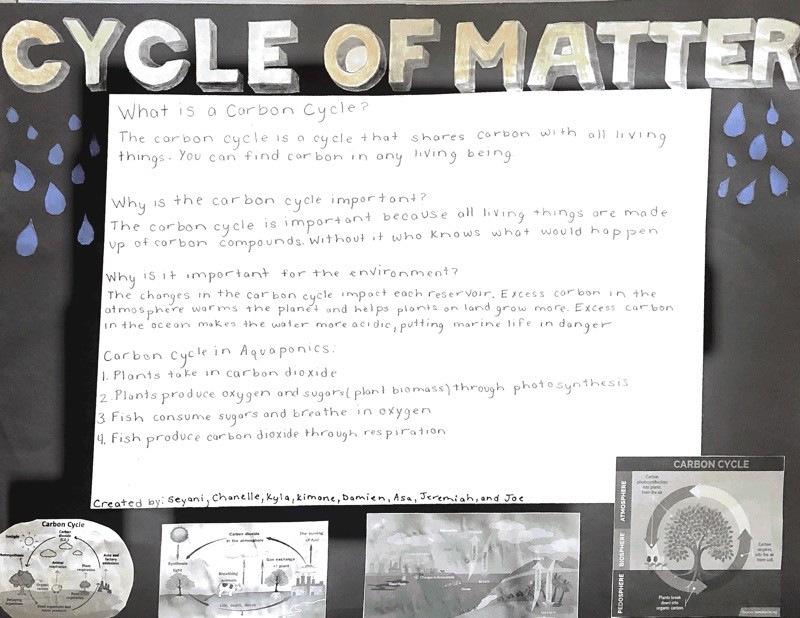 CYCLE OF MATTER
What is a Carbon Cycle?
The carbon cycle is a cycle that shares carbon with all living
things. You can find carbon in any living being.
Why is the carbon cycle important?
The carbon cycle is important because all living things are made
up of carbon compounds. Without it who knows what would happen
Why is it important for the environment?
The changes in the carbon cycle impact each reservoir. Excess carbon in the
atmosphere warms the planet and helps plants on land grow more. Excess carbon
in the ocean makes the water more acidic, putting marine life in danger
Carbon Cycle in Aquaponics:
1. Plants take in carbon dioxide
2. Plants produce oxygen and sugars (plant biomass) through photosynthesis
3. Fish consume sugars and breathe in oxygen
4. Fish produce carbon dioxide through respiration
Created by: Seyani, Chanelle, Kyla, Kimone, Damien, Asa, Jeremiah, and Joe
Carbon Cycle
Sunlight
Carbon
dioxide
Auto and
factory
emissions
Animal
respiration
Plant
respiration
Carbon dioxide
in the atmosphere
The burning
of fuel
Synthesis
light
Breathing
animals
Gas exchange
of plant
CARBON CYCLE
ATMOSPHERE
BIOSPHERE
PEDOSPHERE
Carbon
into plants
from the air
Carbon
respires
into the air
from soil.
Plants break
down into
organic carbon